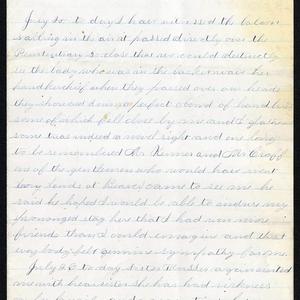 July 20 to day I have witnessed the baloon
sailing in the air it passed directly over the
Penitentiary so close that we could distinctly
see the lady who was in the basket wave her
handkerchief when they passed over our heads
they showered down a perfect cloud of hand bills
some of which fell close by me and I
some it was indeed a novel sight and one long
to be remembered Mr and
one of the gentlemen who would have
came to see me he
said he hoped I would be able to endure my
prolonged stay here that I had um more
friends than I could imagin and that
every body felt genuine sympathy for me
July 26 to day Sister acquainted
me with hear sister she has had sickness